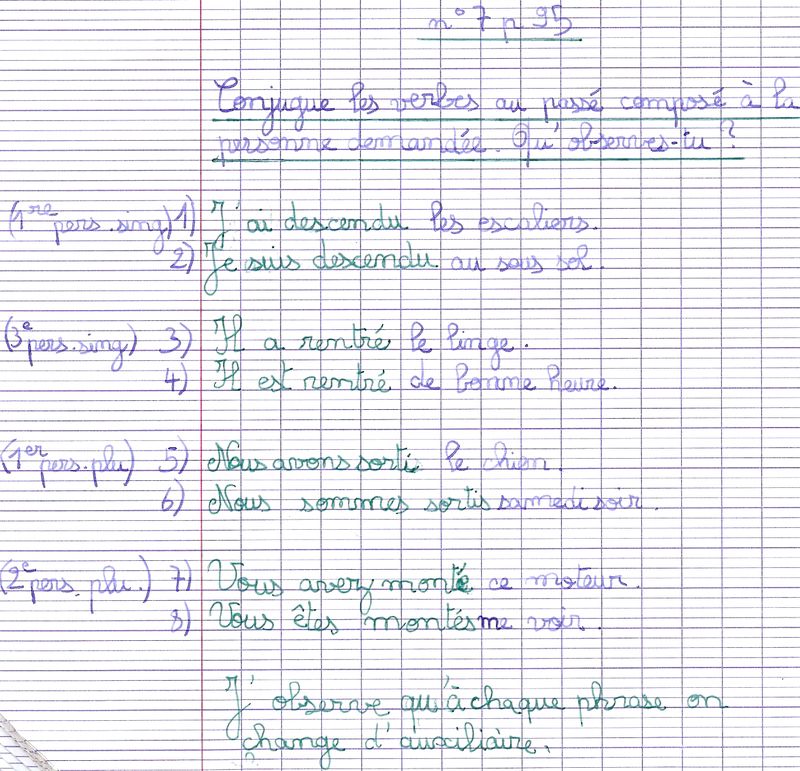 n° 7 p 95
Conjugue les verbes au passé composé à la
personne demandée. Qu'observes-tu ?
(1re pers. sing) 1) J'ai descendu les escaliers.
2) Je suis descendu au sous sol.
(3e pers. sing) 3) Il a rentré le linge.
4) Il est rentré de bonne heure.
(1er pers. plu) 5) Nous avons sorti le chien.
6) Nous sommes sortis samedi soir.
(2e pers. plu.) 7) Vous avez monté ce moteur.
8) Vous êtes montés me voir.
J'observe qu'à chaque phrase on
change d'auxiliaire.